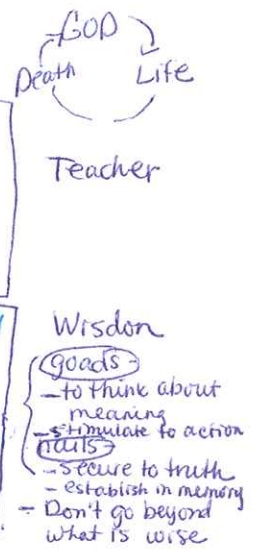 GOD
Death Life
Teacher
Wisdom
goads -
- to think about
meaning
- stimulate to action
nails -
- secure to truth
- establish in memory
- Don't go beyond
what is wise